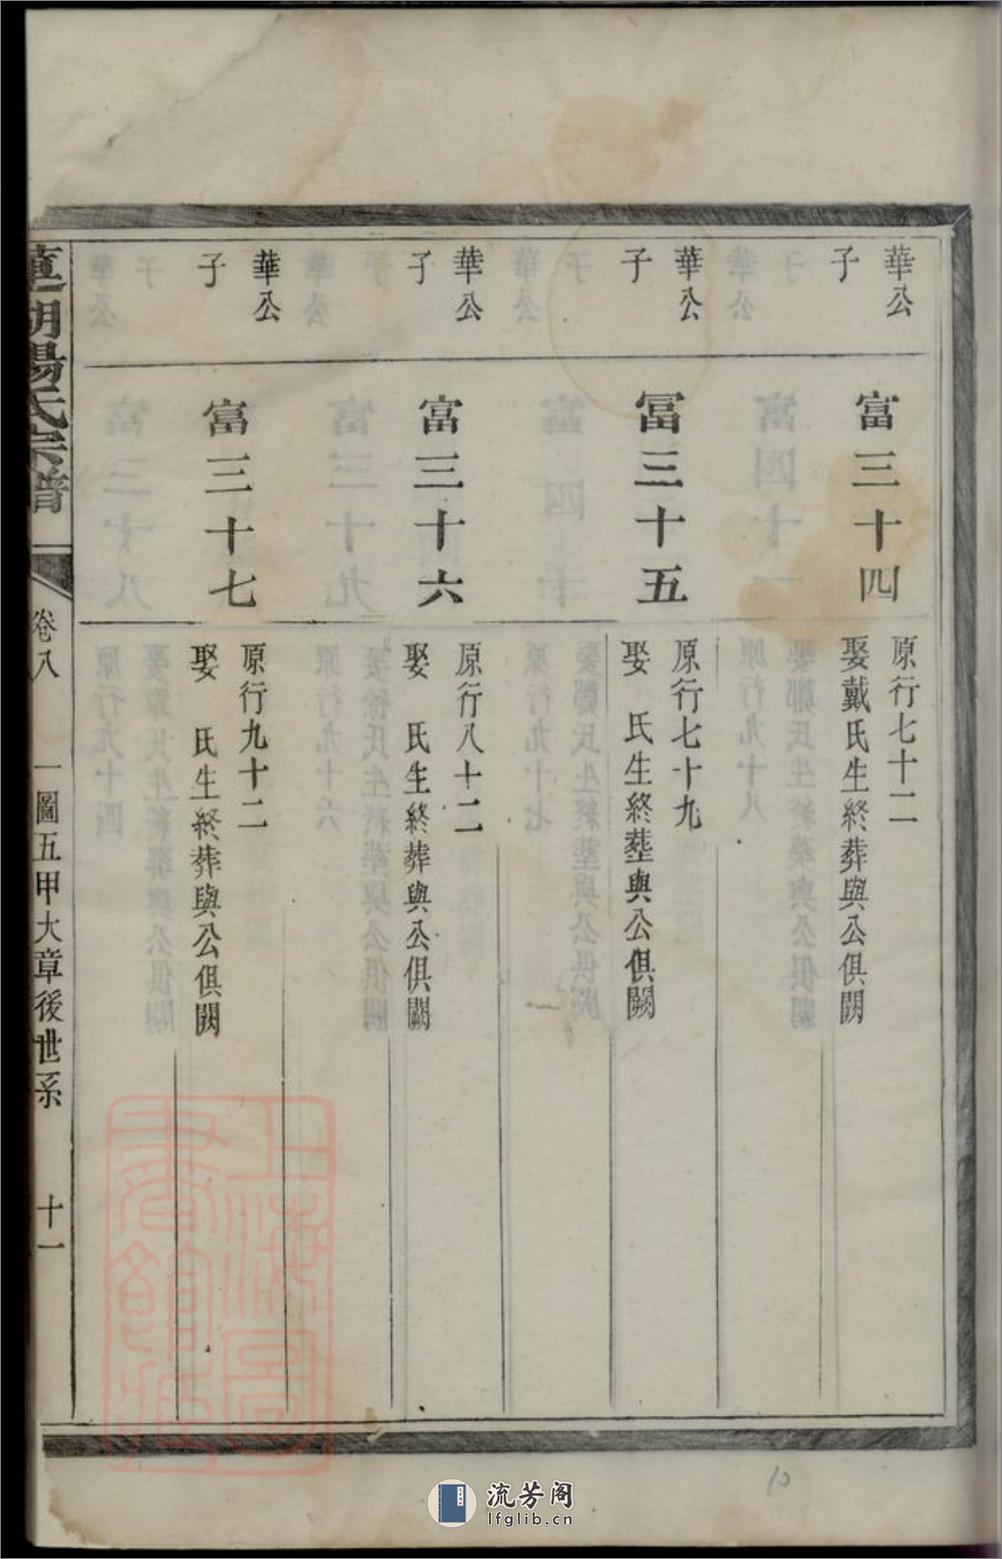 華公
子
富三十四
原行七十二
娶戴氏生終葬與公俱闕
華公
子
冨三十五
原行七十九
娶 氏生終塟與公俱闕
華公
子
富三十六
原行八十二
娶 氏生終葬與公俱闕
華公
子
富三十七
原行九十二
娶 氏生終葬與公俱闕
湖楊氏宗譜
卷八
一圖五甲大章後世系
十一
上海圖書館藏
10
流芳阁
lfglib.cn